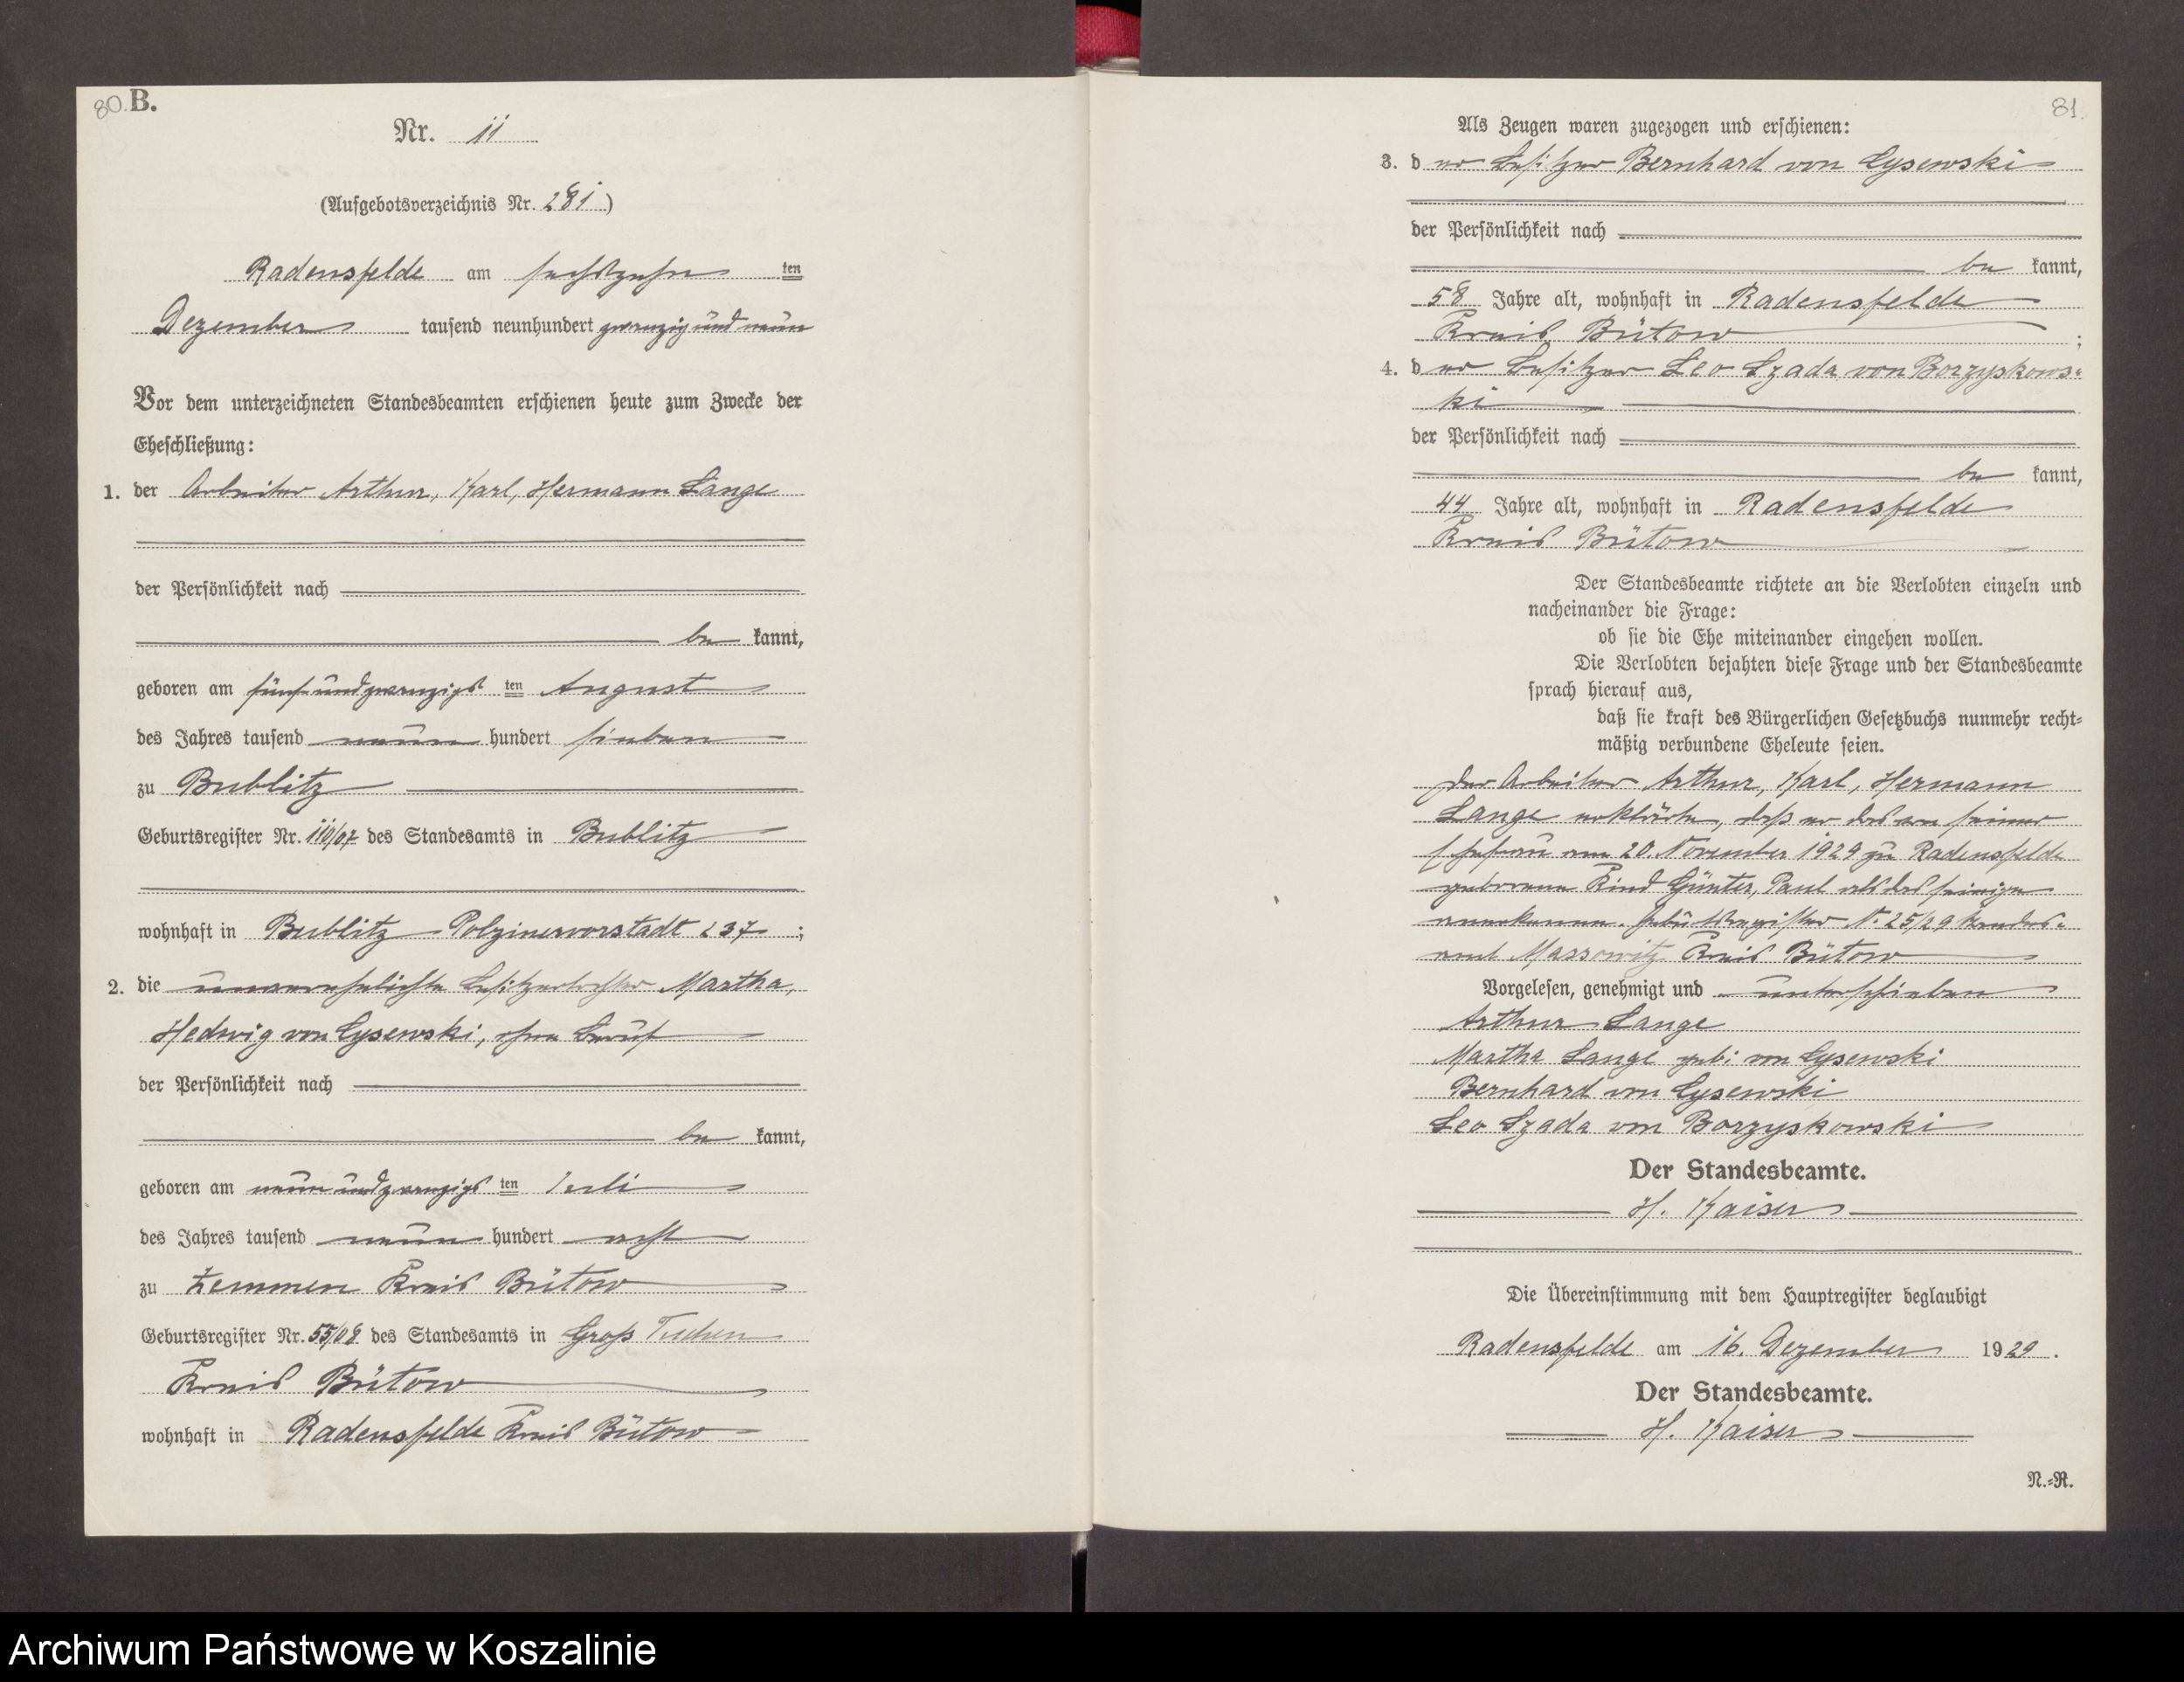 80. B.
Nr. 11
(Aufgebotsverzeichnis Nr. 281)
Radensfelde am sechszehn ten
Dezember tausend neunhundert zwanzig und neun
Vor dem unterzeichneten Standesbeamten erschienen heute zum Zwecke der
Eheschließung:
1. der Arbeiter Arthur, Karl, Hermann Lange
der Persönlichkeit nach
be kannt,
geboren am fünf und zwanzigs ten August
des Jahres tausend neun hundert sieben
zu Bublitz
Geburtsregister Nr. 110/07 des Standesamts in Bublitz
wohnhaft in Bublitz Polzinervorstadt 237 ;
2. die unverehelichte Besitzertochter Martha,
Hedwig von Lysewski, ohne Beruf
der Persönlichkeit nach
be kannt,
geboren am neun und zwanzigs ten Juli
des Jahres tausend neun hundert acht
zu Zemmen Kreis Bütow
Geburtsregister Nr. 55/08 des Standesamts in Groß Tuchen
Kreis Bütow
wohnhaft in Radensfelde Kreis Bütow
81.
Als Zeugen waren zugezogen und erschienen:
3. d er Besitzer Bernhard von Lysewski
der Persönlichkeit nach
be kannt,
58 Jahre alt, wohnhaft in Radensfelde
Kreis Bütow ;
4. d er Besitzer Leo Szada von Borzyskows-
ki
der Persönlichkeit nach
be kannt,
44 Jahre alt, wohnhaft in Radensfelde
Kreis Bütow
Der Standesbeamte richtete an die Verlobten einzeln und
nacheinander die Frage:
ob sie die Ehe miteinander eingehen wollen.
Die Verlobten bejahten diese Frage und der Standesbeamte
sprach hierauf aus,
daß sie kraft des Bürgerlichen Gesetzbuchs nunmehr recht-
mäßig verbundene Eheleute seien.
Der Arbeiter Arthur, Karl, Hermann
Lange erklärte, daß er das von seiner
Ehefrau am 20. November 1929 zu Radensfelde
geborene Kind Günter, Paul als das seinige
anerkenne. Geburtsregister N. 25/29 Standes-
amt Massowitz Kreis Bütow
Vorgelesen, genehmigt und unterschrieben
Arthur Lange
Martha Lange geb: von Lysewski
Bernhard von Lysewski
Leo Szada von Borzyskowski
Der Standesbeamte.
H. Kaiser
Die Übereinstimmung mit dem Hauptregister beglaubigt
Radensfelde am 16. Dezember 19 29 .
Der Standesbeamte.
H. Kaiser
N.-R.
Archiwum Państwowe w Koszalinie